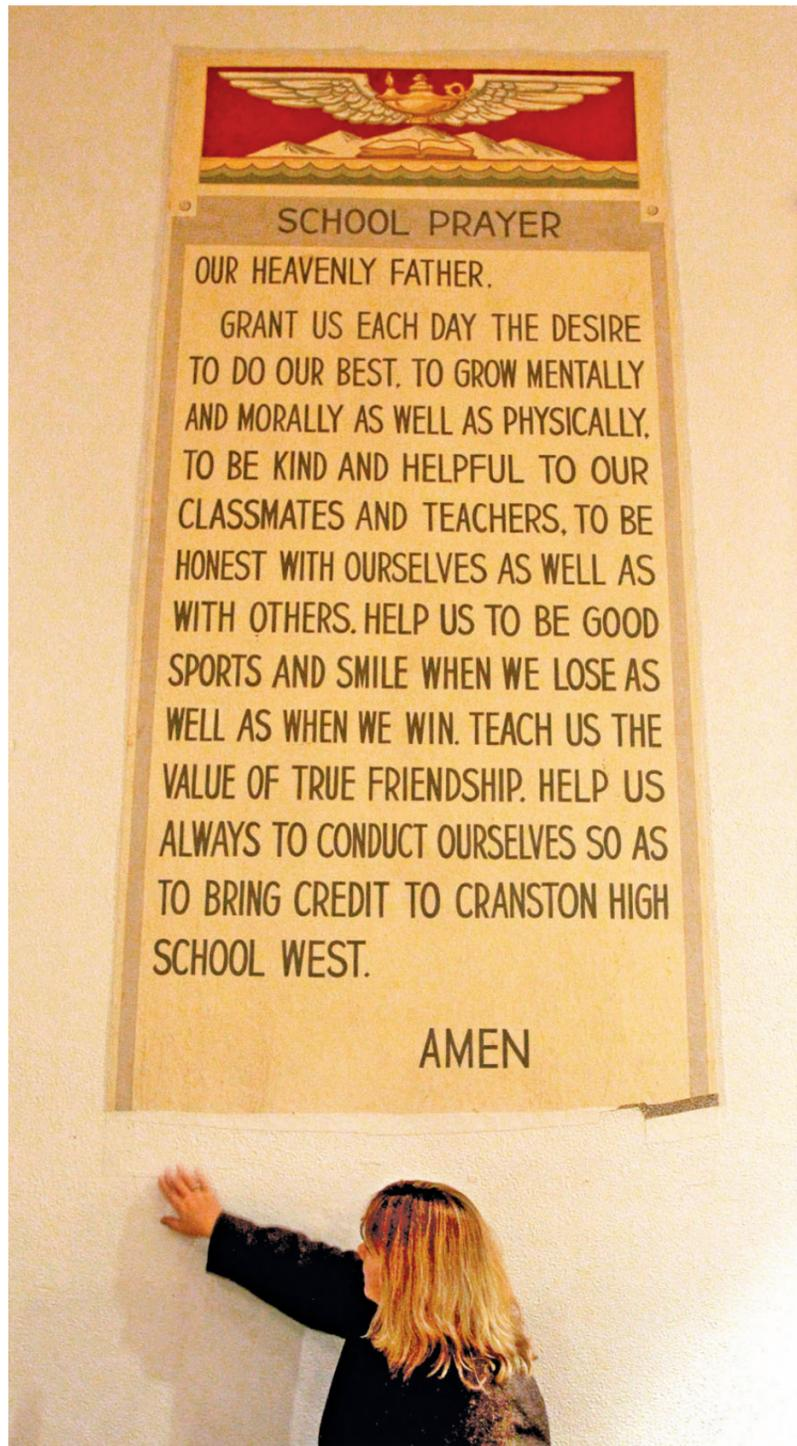 SCHOOL PRAYER
OUR HEAVENLY FATHER.
GRANT US EACH DAY THE DESIRE
TO DO OUR BEST. TO GROW MENTALLY
AND MORALLY AS WELL AS PHYSICALLY.
TO BE KIND AND HELPFUL TO OUR
CLASSMATES AND TEACHERS, TO BE
HONEST WITH OURSELVES AS WELL AS
WITH OTHERS. HELP US TO BE GOOD
SPORTS AND SMILE WHEN WE LOSE AS
WELL AS WHEN WE WIN. TEACH US THE
VALUE OF TRUE FRIENDSHIP. HELP US
ALWAYS TO CONDUCT OURSELVES SO AS
TO BRING CREDIT TO CRANSTON HIGH
SCHOOL WEST.
AMEN